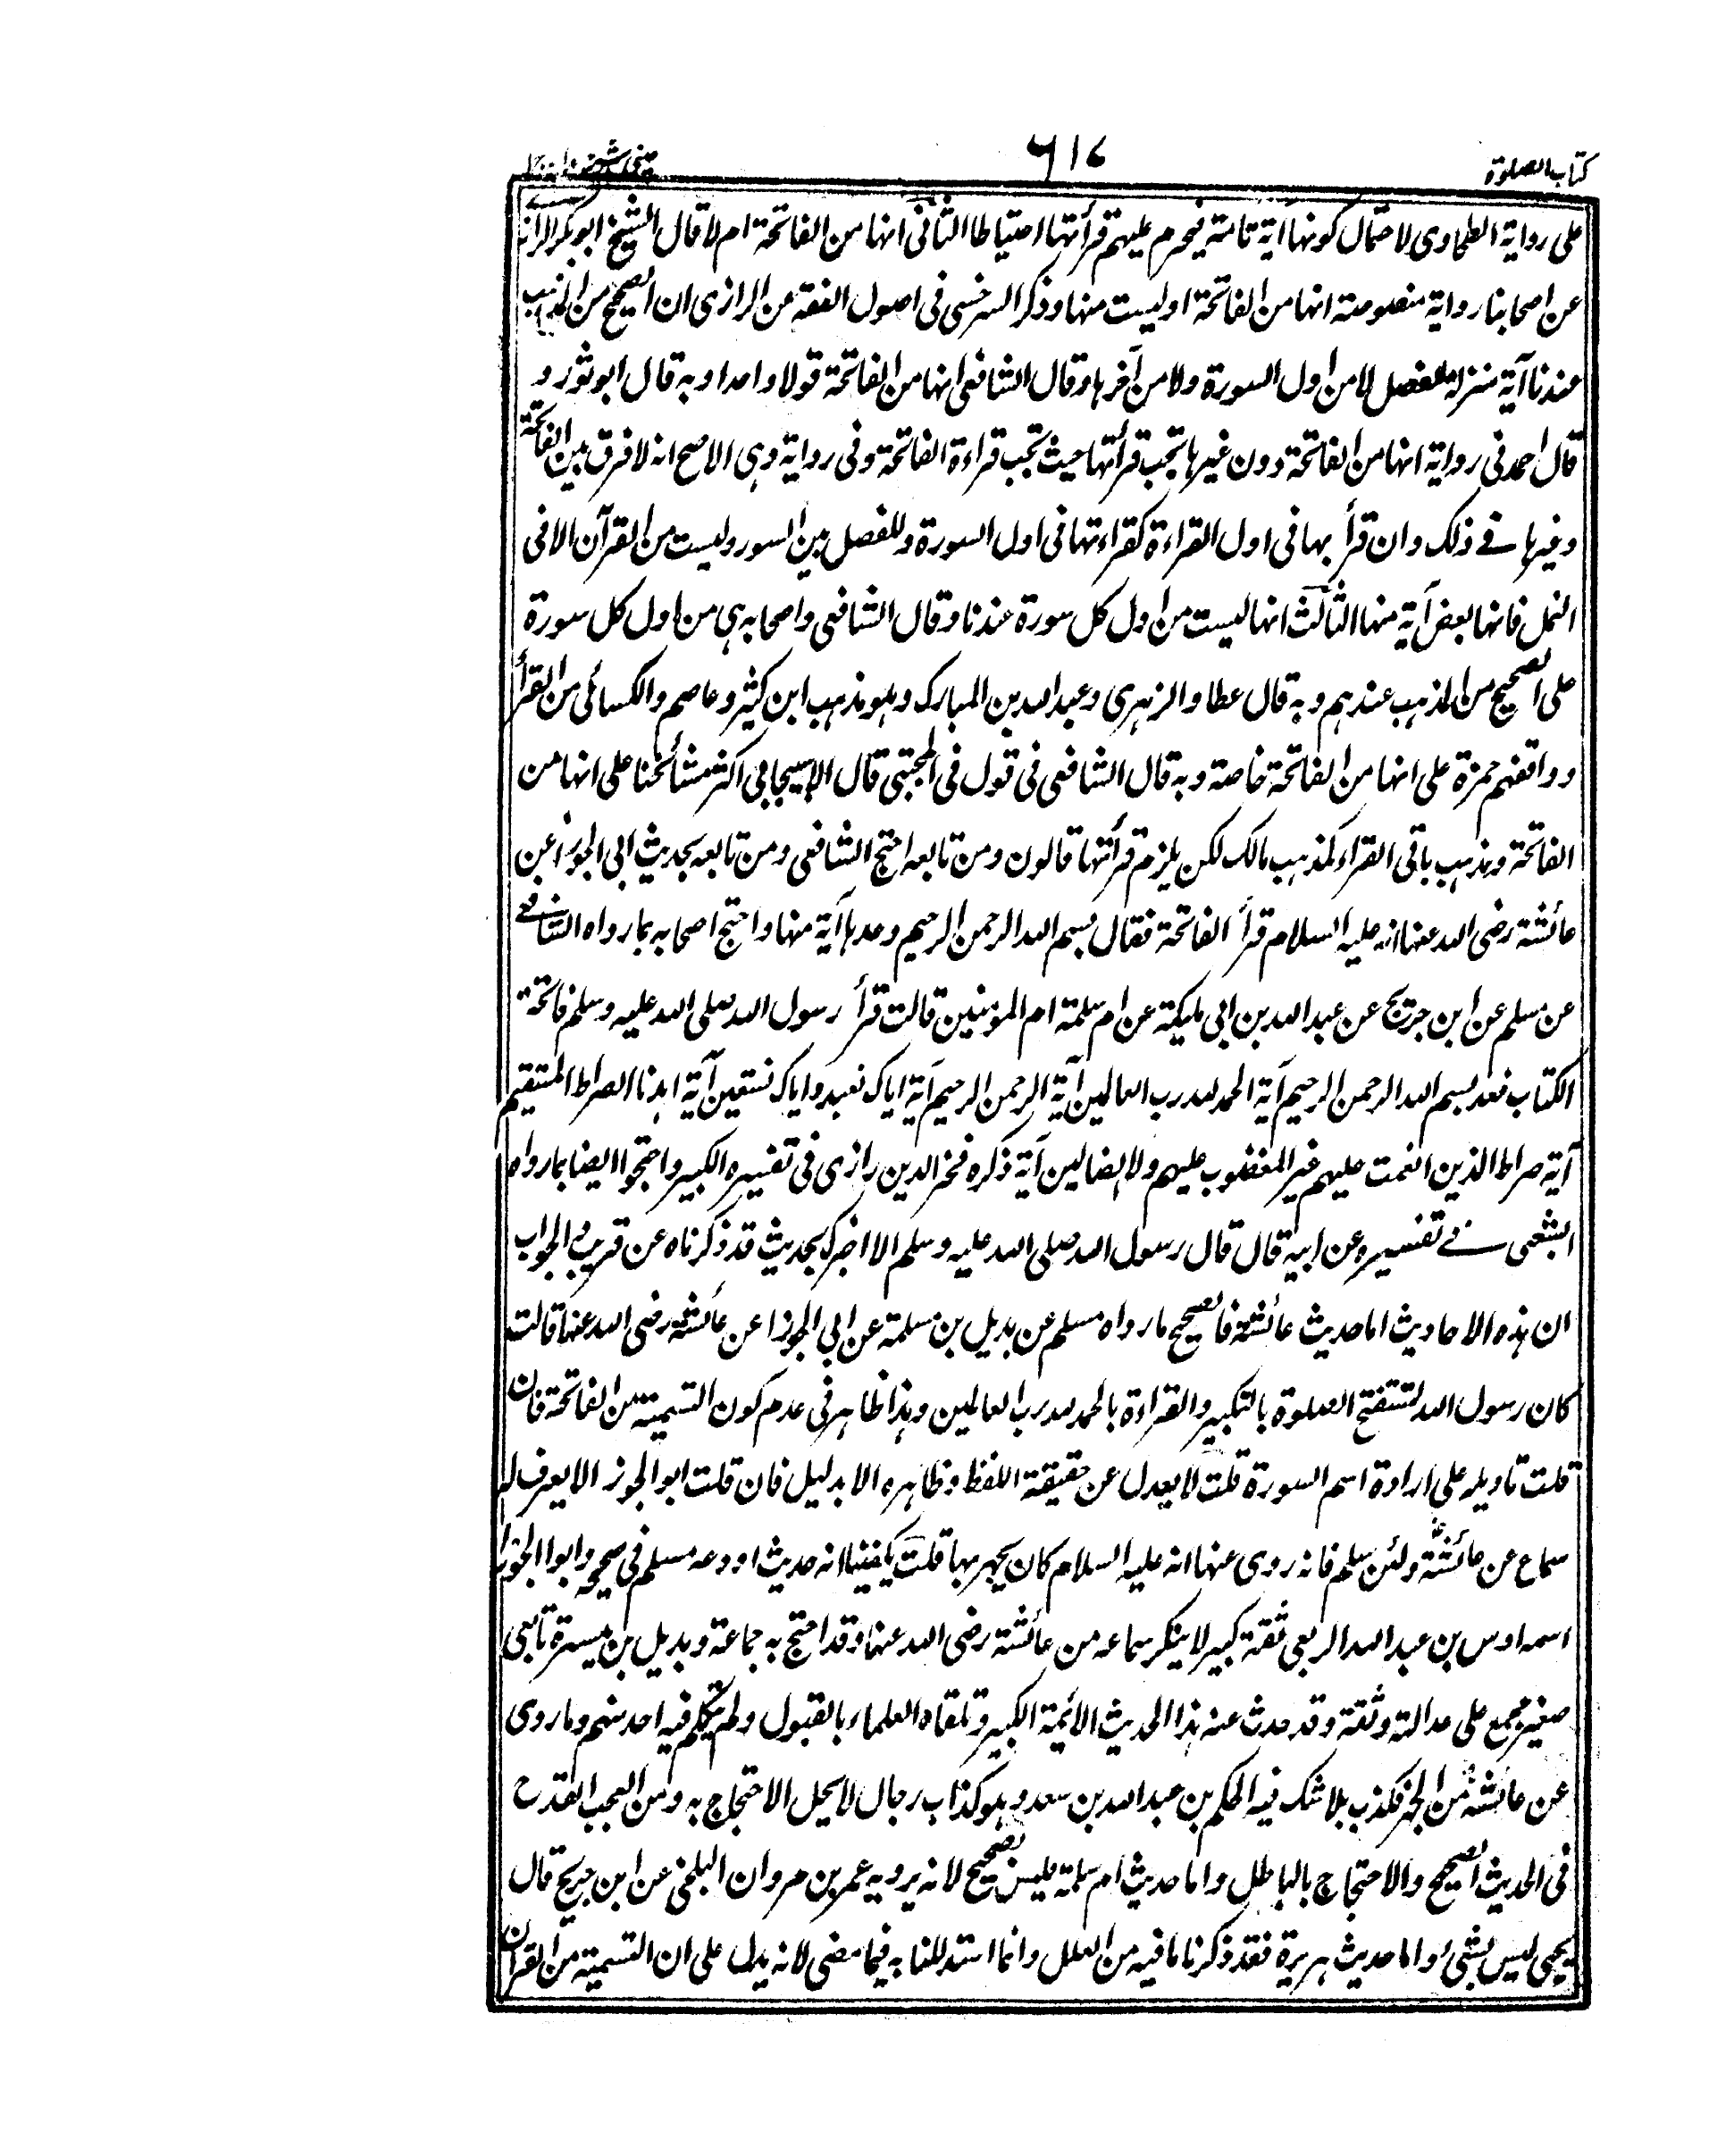 كتاب الصلوة
٦١٧
على رواية الطحاوى لاحتمال كونها آية تامة فيحرم عليهم قرأتها احتياطا الثانى انها من الفاتحة ام لا قال الشيخ ابو بكر الراز
عن اصحابنا رواية منصوصة انها من الفاتحة او ليست منها وذكر السرخسى فى اصول الفقه عن الرازى ان الصحيح من المذهب
عندنا آية منزلة للفصل لا من اول السورة ولا من آخرها وقال الشافعى انها من الفاتحة قولا واحدا وبه قال ابو ثور و
قال احمد فى رواية انها من الفاتحة دون غيرها تجب قرأتها حيث تجب قراءة الفاتحة وفى رواية وهى الاصح انه لا فرق بين الفاتحة
وغيرها فى ذلك وان قرأ بها فى اول القراءة كقراءتها فى اول السورة وللفصل بين السور وليست من القرآن الا فى
النمل فانها بعض آية منها الثالث انها ليست من اول كل سورة عندنا وقال الشافعى واصحابه هى من اول كل سورة
على الصحيح من المذهب عندهم وبه قال عطا والزهرى وعبد الله بن المبارك وهو مذهب ابن كثير وعاصم والكسائى من القرأ
ووافقهم حمزة على انها من الفاتحة خاصة وبه قال الشافعى فى قول فى المجتبى قال الاسبيجابى اكثر مشائخنا على انها من
الفاتحة ومذهب باقى القراء كمذهب مالك لكن يلزم قرأتها قالون ومن تابعه احتج الشافعى ومن تابعه بحديث ابى الجوزا عن
عائشة رضى الله عنها انه عليه السلام قرأ الفاتحة فقال بسم الله الرحمن الرحيم وعدها آية منها واحتج اصحابه بما رواه الشافعى
عن مسلم عن ابن جريج عن عبد الله بن ابى مليكة عن ام سلمة ام المؤمنين قالت قرأ رسول الله صلى الله عليه وسلم فاتحة
الكتاب فعد بسم الله الرحمن الرحيم آية الحمد لله رب العالمين آية الرحمن الرحيم آية اياك نعبد واياك نستعين آية اهدنا الصراط المستقيم
آية صراط الذين انعمت عليهم غير المغضوب عليهم ولا الضالين آية ذكره فخر الدين رازى فى تفسيره الكبير واحتجوا ايضا بما رواه
الشعبى فى تفسيره عن ابيه قال قال رسول الله صلى الله عليه وسلم الا اخبرك بحديث قد ذكرناه عن قريب والجواب
ان هذه الاحاديث اما حديث عائشة فالصحيح ما رواه مسلم عن بديل بن سلمة عن ابى الجوزا عن عائشة رضى الله عنها قالت
كان رسول الله تستفتح الصلوة بالتكبير والقراءة بالحمد لله رب العالمين وهذا ظاهر فى عدم كون التسمية من الفاتحة فان
قلت تاويله على ارادة اسم السورة قلت لا يعدل عن حقيقة اللفظ وظاهره الا بدليل فان قلت ابو الجوز الا يعرف له
سماع عن عائشة ولئن سلم فانه روى عنها انه عليه السلام كان يجهر بها قلت يكفينا انه حديث اودعه مسلم فى صحيحه وابوا الجوزا
اسمه اوس بن عبد الله الربعى ثقة كبير لا ينكر سماعه من عائشة رضى الله عنها وقد احتج به جماعة وبديل بن ميسرة تابعى
صغير مجمع على عدالته وثقته وقد حدث عنه بهذا الحديث الائمة الكبير وتلقاه العلماء بالقبول ولم يتكلم فيه احد منهم وما روى
عن عائشة من الجهر فكذب بلا شك فيه الحكم بن عبد الله بن سعد وهو كذاب رجال لا يحل الاحتجاج به ومن العجب القدح
فى الحديث الصحيح والاحتجاج بالباطل واما حديث ام سلمة فليس بصحيح لانه يرويه عمر بن مروان البلخى عن ابن جريج قال
يحيى ليس بشئ واما حديث هريرة فقد ذكرنا ما فيه من العلل وانما استدللنا به فيما مضى لانه يدل على ان التسمية من القرآن